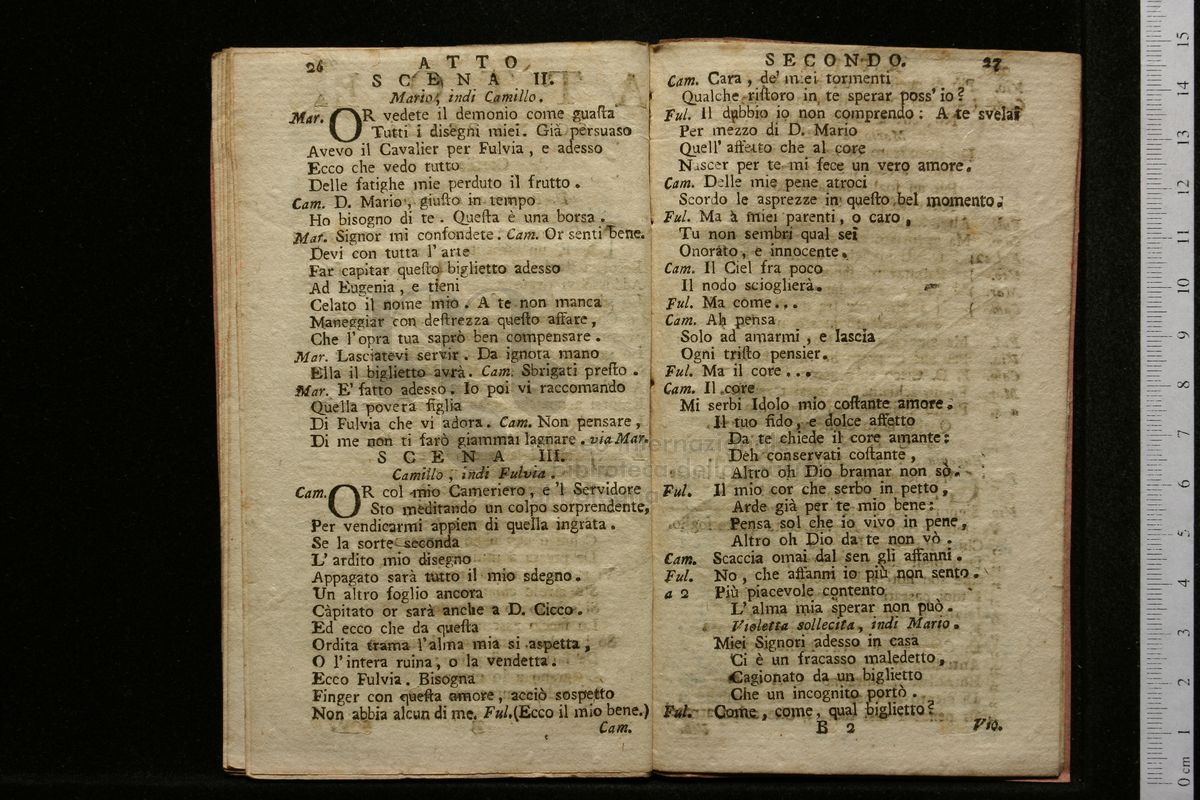 26 ATTO
SCENA II.
Mario, indi Camillo.
Mar. OR vedete il demonio come guaſta
Tutti i diſegni miei. Già perſuaso
Avevo il Cavalier per Fulvia, e adesso
Ecco che vedo tutto
Delle fatighe mie perduto il frutto.
Cam. D. Mario, giuſto in tempo
Ho bisogno di te. Queſta è una borsa.
Mar. Signor mi confondete. Cam. Or senti bene.
Devi con tutta l'arte
Far capitar queſto biglietto adesso
Ad Eugenia, e tieni
Celato il nome mio. A te non manca
Maneggiar con deſtrezza queſto affare,
Che l'opra tua saprò ben compensare.
Mar. Lasciatevi servir. Da ignota mano
Ella il biglietto avrà. Cam. Sbrigati preſto.
Mar. E' fatto adesso. Io poi vi raccomando
Quella povera figlia
Di Fulvia che vi adora. Cam. Non pensare,
Di me non ti farò giammai lagnare. via Mar.
SCENA III.
Camillo, indi Fulvia.
Cam. OR col mio Cameriero, e 'l Servidore
Sto meditando un colpo sorprendente,
Per vendicarmi appien di quella ingrata.
Se la sorte seconda
L'ardito mio disegno
Appagato sarà tutto il mio sdegno.
Un altro foglio ancora
Càpitato or sarà anche a D. Cicco.
Ed ecco che da queſta
Ordita trama l'alma mia si aspetta,
O l'intera ruina, o la vendetta.
Ecco Fulvia. Bisogna
Finger con queſta amore, acciò sospetto
Non abbia alcun di me. Ful. (Ecco il mio bene.)
Cam.
SECONDO. 27
Cam. Cara, de' miei tormenti
Qualche riſtoro in te sperar poss' io?
Ful. Il dubbio io non comprendo: A te svelai
Per mezzo di D. Mario
Quell' affetto che al core
Nascer per te mi fece un vero amore.
Cam. Delle mie pene atroci
Scordo le asprezze in queſto bel momento.
Ful. Ma a miei parenti, o caro,
Tu non sembri qual sei
Onorato, e innocente.
Cam. Il Ciel fra poco
Il nodo scioglierà.
Ful. Ma come...
Cam. Ah pensa
Solo ad amarmi, e lascia
Ogni triſto pensier.
Ful. Ma il core...
Cam. Il core
Mi serbi Idolo mio coſtante amore.
Il tuo fido, e dolce affetto
Da te chiede il core amante:
Deh conservati coſtante,
Altro oh Dio bramar non sò.
Ful. Il mio cor che serbo in petto,
Arde già per te mio bene:
Pensa sol che io vivo in pene,
Altro oh Dio da te non vò.
Cam. Scaccia omai dal sen gli affanni.
Ful. No, che affanni io più non sento.
a 2 Più piacevole contento
L'alma mia sperar non può.
Violetta sollecita, indi Mario.
Miei Signori adesso in casa
Ci è un fracasso maledetto,
Cagionato da un biglietto
Che un incognito portò.
Ful. Come, come, qual biglietto?
B 2 Vio.